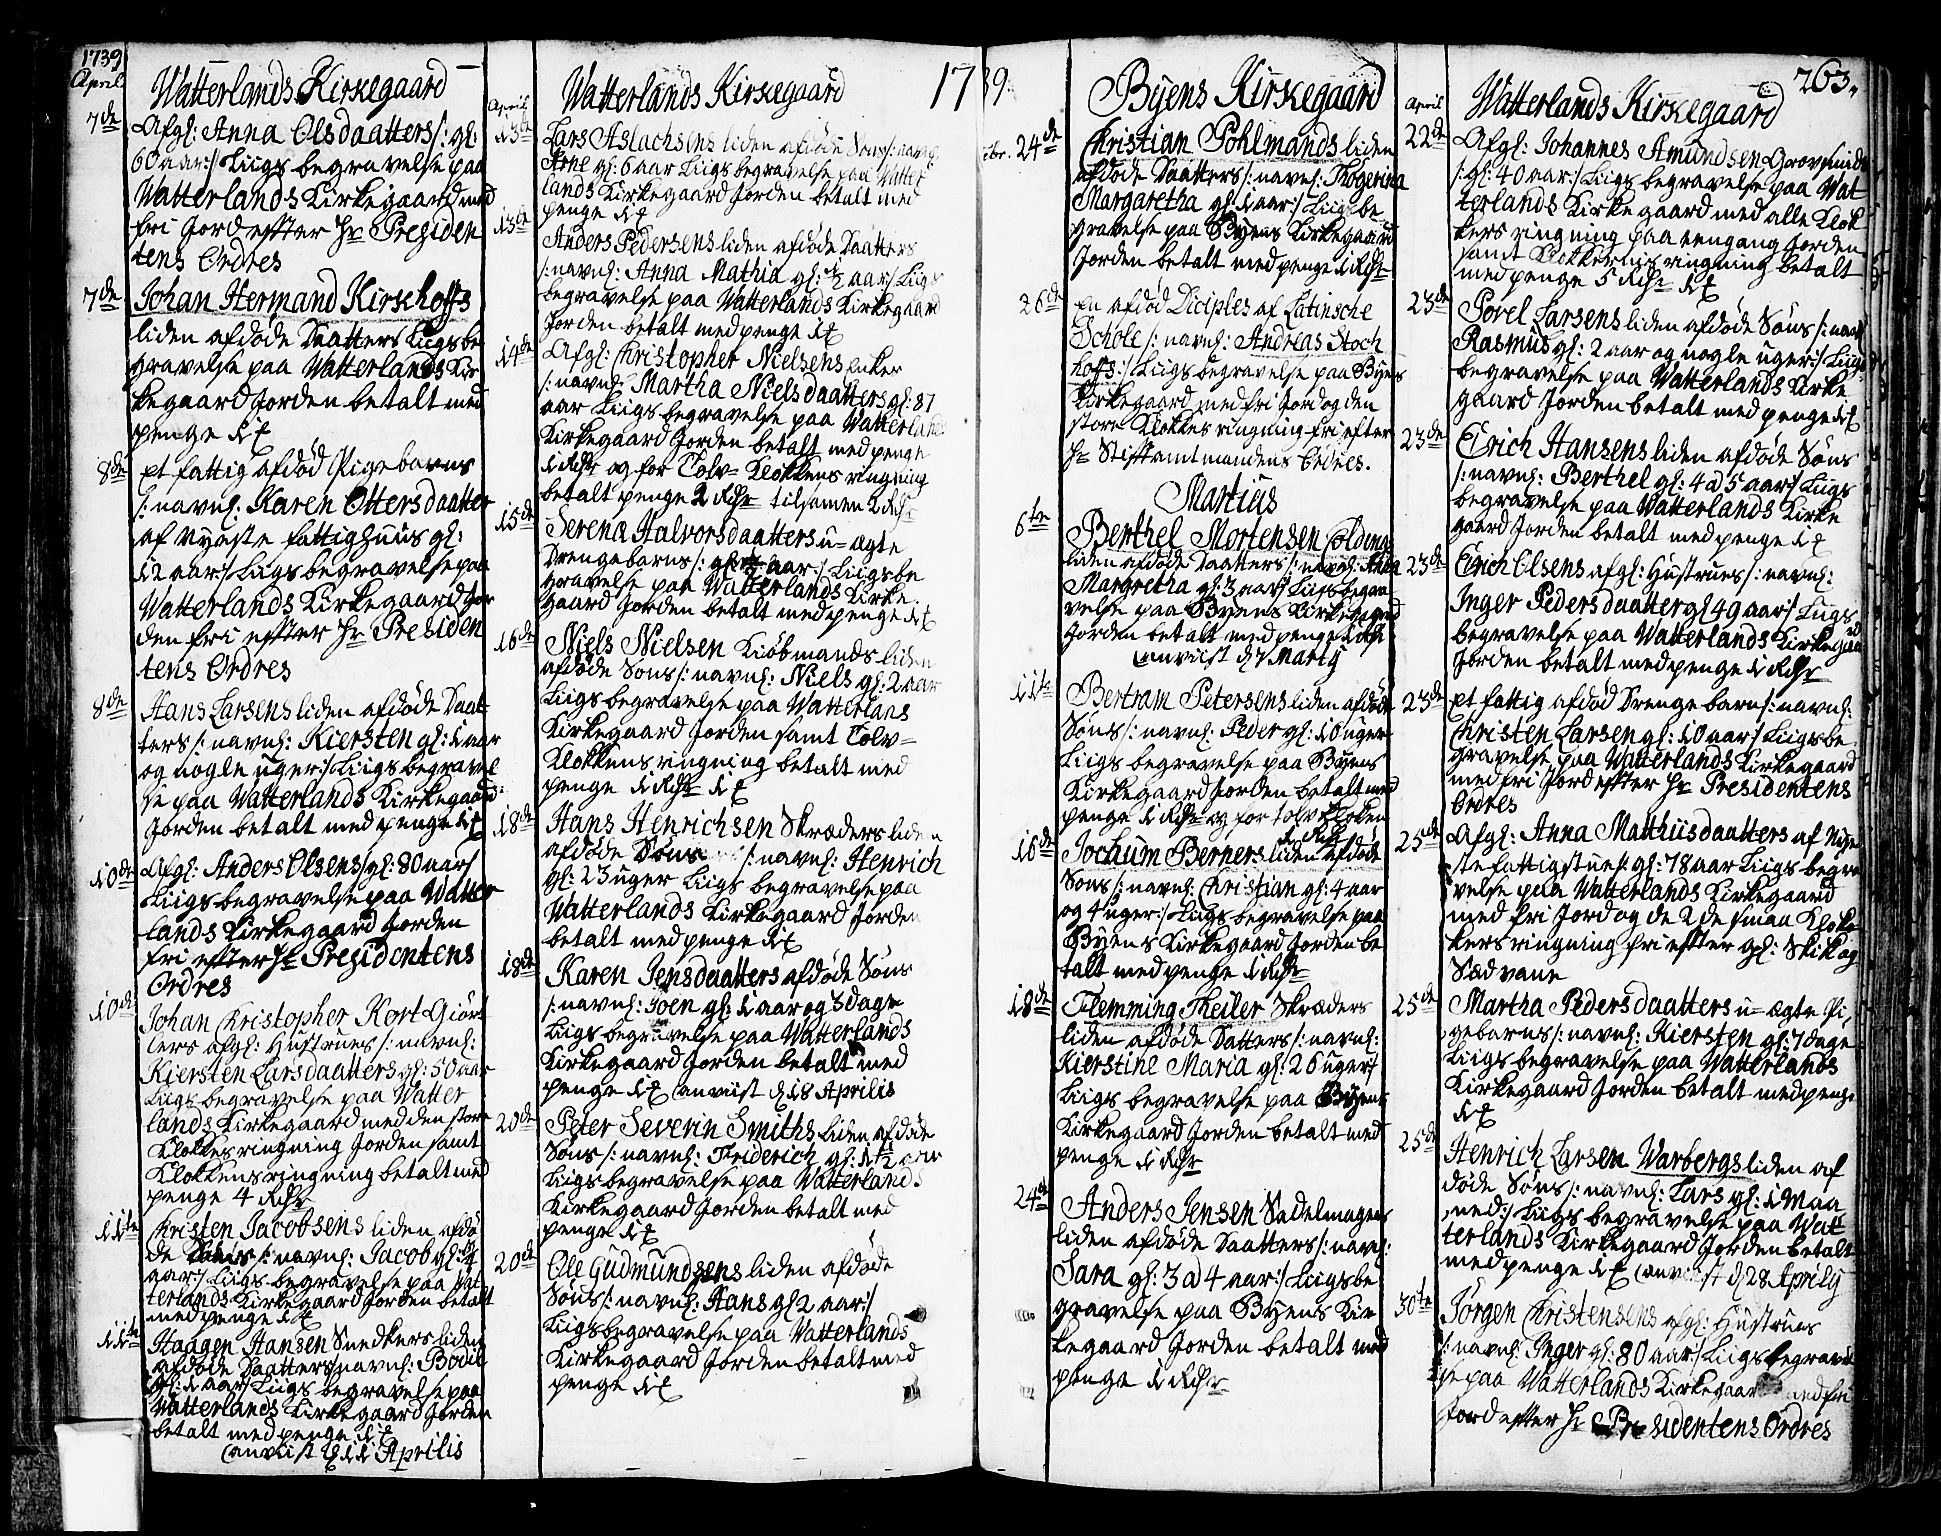 1739
April
Watterlands Kirkegaard
7de Afgl: Anna Olsdaatters /: gl:
60 aar :/ Liigs begravelse paa
Watterlands Kirkegaard med
fri Jord effter Hr Presiden
tens Ordres
7de Johan Hermand Kirschoffs
liden afdøde Daatters Liigs be
gravelse paa Watterlands Kir
kegaard Jorden betalt med
penge
8de Et fattig afdød Pigebarns
/: navnl: Karen Ottersdaatter
af Nyeste fattighuus gl:
12 aar :/ Liigs begravelse paa
Watterlands Kirkegaard Jor
den fri effter Hr Presiden
tens Ordres
8de Hans Larsens liden afdøde Daat
ters /: navnl: Kiersten gl: 1 aar
og nogle uger :/ Liigs begravel
se paa Watterlands Kirkegaard
Jorden betalt med penge
10de Afgl: Anders Olsens gl: 80 aar
Liigs begravelse paa Watter
lands Kirkegaard Jorden
fri effter Hr Presidentens
Ordres
10de Johan Christopher Kort Giørt
lers afgl: Hustrues /: navnl:
Kiersten Larsdaatters gl: 50 aar
Liigs begravelse paa Watter
lands Kirkegaard med den store
Klokkes ringning Jorden samt
Klokkens ringning betalt med
penge 4 Rdr
11te Christen Jacobsens liden afdø
de Søns /: navnl: Jacob gl:
aar :/ Liigs begravelse paa Wat
terlands Kirkegaard Jorden betalt
med penge
11te Haagen Hansen Snedkers liden
afdøde Daatters navnl: Bodil
gl: 1 aar Liigs begravelse paa
Watterlands Kirkegaard Jorden
betalt med penge
anviist d 11 Aprilis
April
Watterlands Kirkegaard
17
13de Lars Aslachsens liden afdøde Søns /: navnl:
Arne gl: 6 aar Liigs begravelse paa Watter
lands Kirkegaard Jorden betalt med
penge
13de Anders Pedersens liden afdøde Daatters
/: navnl: Anna Mathia gl: 1/2 aar :/ Liigs
begravelse paa Watterlands Kirkegaard
Jorden betalt med penge
14de Afgl: Christopher Nielsens Enkes
/: navnl: Martha Nielsdaatters gl: 87
aar Liigs begravelse paa Watterlands
Kirkegaard Jorden betalt med penge
1 Rdr og for Tolv= Klokkens ringning
betalt penge 2 Rdr tilsamen 2 Rdr
15de Serena Halvorsdaatters u=ægte
Drengebarns /: gl: aar :/ Liigs be
gravelse paa Watterlands Kirke
gaard Jorden betalt med penge
16de Niels Nielsen Kiøbmands liden
afdøde Søns /: navnl: Niels gl: 2 aar
Liigs begravelse paa Watterlans
Kirkegaard Jorden samt Tolv=
Klokkens ringning betalt med
penge 1 Rdr
18de Hans Henrichsen Skræders liden
afdøde Søns /: navnl: Henrich
gl: 23 uger Liigs begravelse paa
Watterlands Kirkegaard Jorden
betalt med penge
18de Karen Jensdaatters afdøde Søns
/: navnl: Joen gl: 1 aar og 8 dage
Liigs begravelse paa Watterlands
Kirkegaard Jorden betalt med
penge anviist d 18 Aprilis
20de Peter Severin Smiths liden afdøde
Søns /: navnl: Friderich gl: 1 1/2 aar
Liigs begravelse paa Watterlands
Kirkegaard Jorden betalt med
penge
20de Ole Gudmundsens liden afdøde
Søns /: navnl: Hans gl 2 aar :/
Liigs begravelse paa Watterlands
Kirkegaard Jorden betalt med
penge
39.
Byens Kirkegaard
24de Christian Pohlmands liden
afdøde Daatters /: navnl: Thogerina
Margaretha gl: 1 aar :/ Liigs be
gravelse paa Byens Kirkegaard
Jorden betalt med penge 1 Rdr
26de En afdød Diciples af Latinsche
Schole /: navnl: Andreas Stoch
hoffs :/ Liigs begravelse paa Byens
Kirkegaard med fri Jord og den
store Klokkes ringning fri efter
Hr Stiftamtmandens Ordres.
Martius
6te Berthel Mortensen Coldings
liden afdøde Daatters /: navnl: Anna
Margretha gl: 3 aar :/ Liigs begra
velse paa Byens Kirkegaard
Jorden betalt med penge 1 Rdr
anviist d 7 Martij
11te Bertram Petersens liden afdøde
Søns /: navnl: Peder gl: 10 uger
Liigs begravelse paa Byens
Kirkegaard Jorden betalt med
penge 1 Rdr og for tolv Kloken
1 Rdr
16de Jochum Berners liden afdøde
Søns /: navnl: Christian gl: 4 aar
og 4 uger :/ Liigs begravelse paa
Byens Kirkegaard Jorden be
talt med penge 1 Rdr
18de Flemming Theiler Skræders
liden afdøde Datters /: navnl:
Kierstine Maria gl: 26 uger
Liigs begravelse paa Byens
Kirkegaard Jorden betalt med
penge 1 Rdr
24de Anders Jensen Sadelmagers
liden afdøde Daatters /: navnl:
Sara gl: 3 a 4 aar :/ Liigs be
gravelse paa Byens Kir
kegaard Jorden betalt med
penge 1 Rdr
263.
April
Watterlands Kirkegaard
22de Afgl: Johannes Amundsen Grovsmids
/: gl: 40 aar :/ Liigs begravelse paa Wat
terlands Kirkegaard med alle Klok
kers ringning paa eengang Jorden
samt Klokkernis ringning betalt
med penge 5 Rdr
23de Povel Larsens liden afdøde Søns /: navnl:
Rasmus gl: 2 aar og nogle uger :/ Liigs
begravelse paa Watterlands Kirke
gaard Jorden betalt med penge
23de Erich Hansens liden afdøde Søns
/: navnl: Berthel gl: 4 a 5 aar :/ Liigs
begravelse paa Watterlands Kirke
gaard Jorden betalt med penge
23de Erich Olsens afgl: Hustrues /: navnl:
Inger Pedersdaatter gl 49 aar :/ Liigs
begravelse paa Watterlands Kirkegaard
Jorden betalt med penge 1 Rdr
23de Et fattig afdød Drengebarns /: navnl:
Christen Larsen gl: 10 aar :/ Liigs be
gravelse paa Watterlands Kirkegaard
med fri Jord effter Hr Presidentens
Ordres
25de Afgl: Anna Matthiisdaatters af Nye
ste fattigstue gl: 78 aar Liigs begra
velse paa Watterlands Kirkegaard
med fri Jord og de 2de smaa Klok
kers ringning fri effter gl: Skik og
Sædvane
25de Martha Pedersdaatters u=ægte Pi,
gebarns /: navnl: Kiersten gl: 7 dage
Liigs begravelse paa Watterlands
Kirkegaard Jorden betalt med penge
25de Henrich Larsen Warbergs liden af
døde Søns /: navnl: Lars gl: 1 Maa
ned :/ Liigs begravelse paa Wat
terlands Kirkegaard Jorden betalt
med penge anviist d 28 Aprilij
30te Jørgen Christensens afgl: Hustrues
/: navnl: Inger gl: 80 aar :/ Liigs begravel
se paa Watterlands Kirkegaard med fri
Jord effter Hr Presidentens Ordres